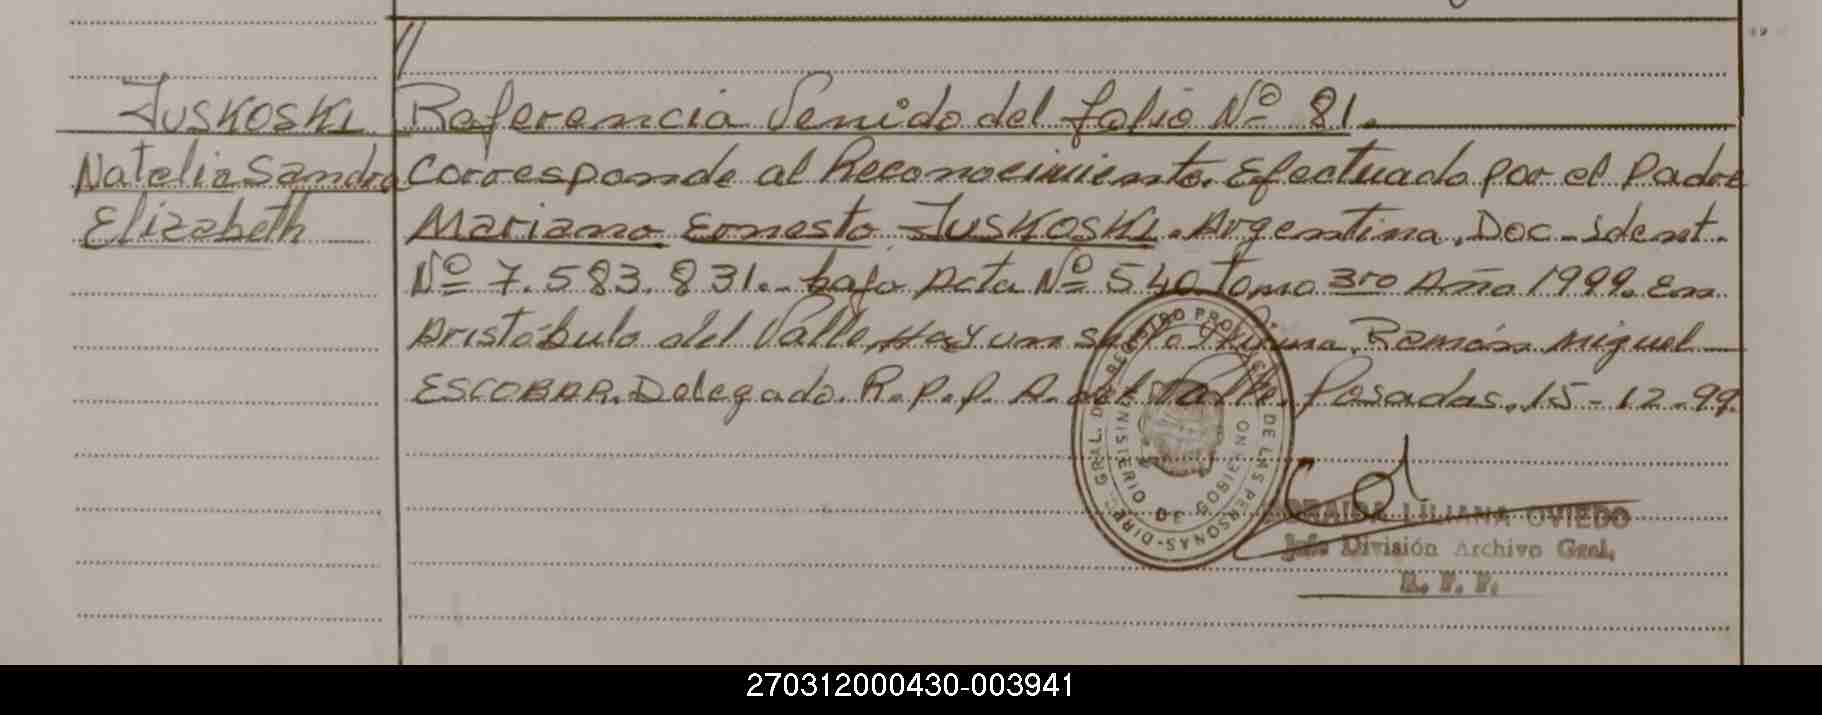 JUSKOSKI
Natalia Sandra
Elizabeth
Referencia Venido del folio Nº 81.
Corresponde al Reconocimiento. Efectuado por el Padre
Mariano Ernesto JUSKOSKI. Argentina. Doc. Ident.
Nº 7.583.831. bajo Acta Nº 540 Tomo 3ro Año 1999. En
Aristóbulo del Valle. Hay un sello y firma. Ramón Miguel
ESCOBAR. Delegado. R.P.P. A. del Valle. Posadas. 15-12-99.
DIRE. GRAL. DE REGISTRO PROVINCIAL DE LAS PERSONAS
MINISTERIO DE GOBIERNO
LILIANA OVIEDO
Jefe División Archivo Gral.
R. P. P.
270312000430-003941